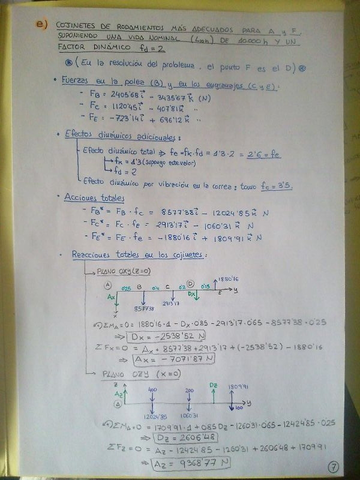 e) COJINETES DE RODAMIENTOS MÁS ADECUADOS PARA A y F
SUPONIENDO UNA VIDA NOMINAL (L10h) DE 20000 h Y UN
FACTOR DINÁMICO fd = 2
(En la resolución del problema, el punto F es el D)
• Fuerzas en la polea (B) y en los engranajes (C y E):
- FB = 2405'68 i - 3435'67 k (N)
- FC = 1120'45 i - 407'81 k
- FE = -723'14 i + 696'12 k
• Efectos dinámicos adicionales:
Efecto dinámico total ⇒ fe = fk·fd = 1'3·2 = 2'6 = fe
fk = 1'3 (supongo este valor)
fd = 2
Efecto dinámico por vibración en la correa: tomo fc = 3'5
• Acciones totales
- FB* = FB · fc = 8577'38 i - 12024'85 k N
- FC* = FC · fe = 2913'17 i - 1060'31 k N
- FE* = FE · fe = -1880'16 i + 1809'91 k N
• Reacciones totales en los cojinetes:
PLANO OXY (z=0)
1880'16
A B C D
0'25 0'4 0'2 0'15
Ax Dx E y
8577'38 2913'17
x
ΣMA = 0 = 1880'16·1 - Dx·0'85 - 2913'17·0'65 - 8577'38·0'25
⇒ Dx = -2538'52 N
ΣFx = 0 = Ax + 8577'38 + 2913'17 + (-2538'52) - 1880'16
⇒ Ax = -7071'87 N
PLANO OZY (x=0)
z
Az 400 200 Dz 1709'91
A y
12024'85
ΣMA = 0 = 1709'91·1 + 0'85 Dz - 1260'31·0'65 - 12424'85·0'25
⇒ Dz = 2606'48
ΣFz = 0 = Az - 12424'85 - 1260'31 + 2606'48 + 1709'91
⇒ Az = 9368'77 N
7